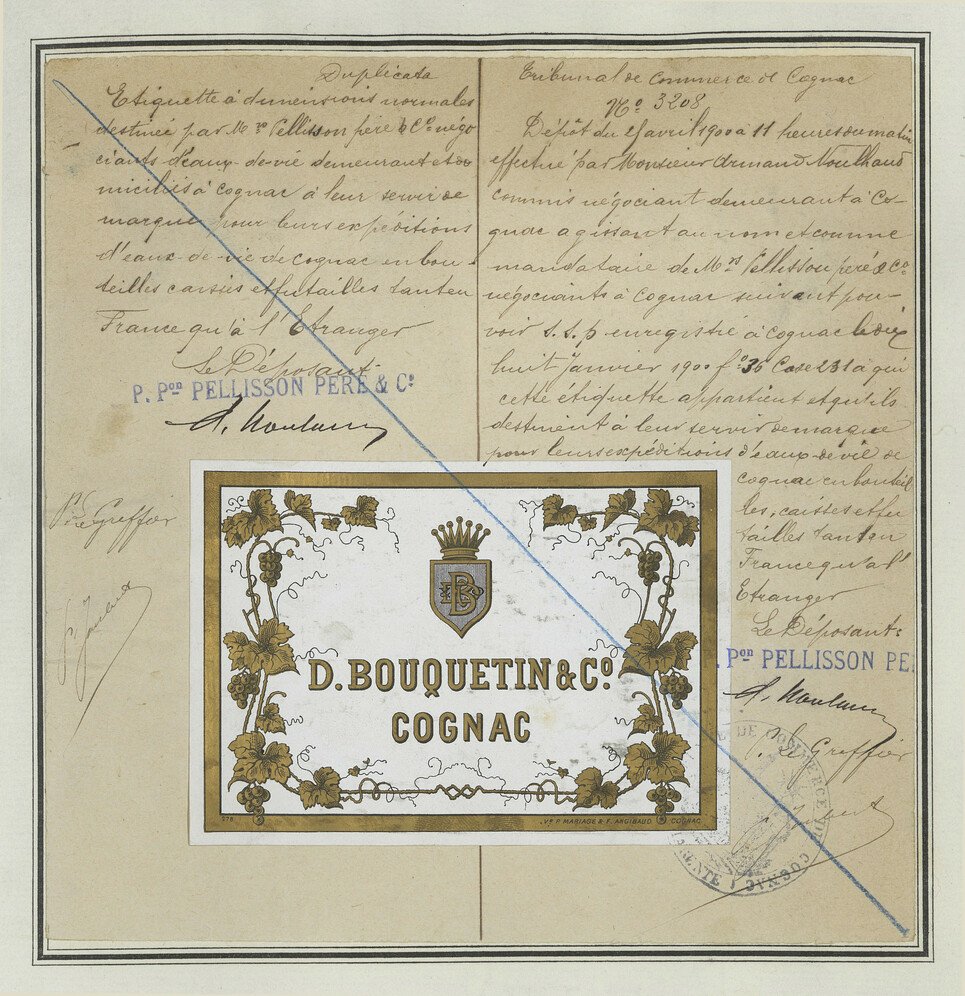 Duplicata
Etiquette à dimensions normales
destinée par Mrs Pellisson père & Co négo
ciants d'eaux-de-vie demeurant et do
miciliés à Cognac à leur servir de
marque pour leurs expéditions
d'eaux-de-vie de Cognac en bou-
teilles caisses et futailles tant en
France qu'à l'Etranger
Le Déposant:
P. Pon PELLISSON PÈRE & Co
Pr Le Greffier
Tribunal de Commerce de Cognac
No 3208
Dépôt du 25 avril 1900 à 11 heures du matin
effectué par Monsieur Armand Noulhaud
commis négociant demeurant à Co-
gnac agissant au nom et comme
mandataire de Mrs Pellisson père & Co
négociants à Cognac suivant pou-
voir s.s.p enregistré à Cognac le dix
huit Janvier 1900 fo 36 Case 231 à qui
cette étiquette appartient et qu'ils
destinent à leur servir de marque
pour leurs expéditions d'eaux-de-vie de
Cognac en bouteil
les, caisses et fu
tailles tant en
France qu'à l'
Etranger
Le Déposant:
. Pon PELLISSON PE
Le Greffier
DE COMMERCE DE COGNAC
RENTE
B
D. BOUQUETIN & Co.
COGNAC
279
Vve P. MARIAGE & F. ANGIBAUD COGNAC